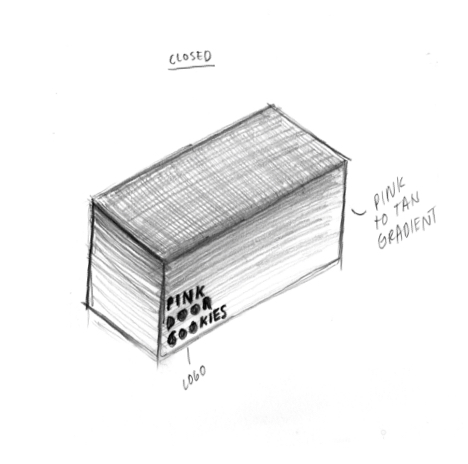 CLOSED
PINK
TO TAN
GRADIENT
PINK
DOOR
COOKIES
LOGO